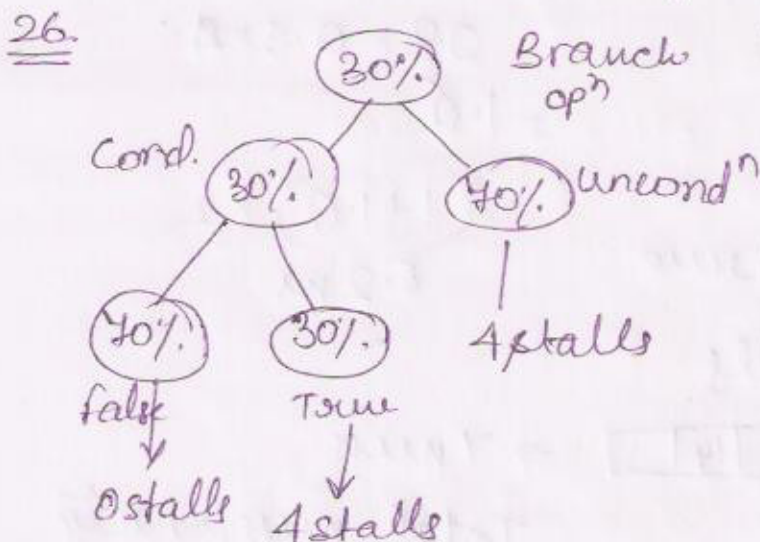 26.
30%. Branch
opⁿ
Cond. 30%. 70%. uncondⁿ
70%. 30%. 4 stalls
false True
0 stalls 4 stalls